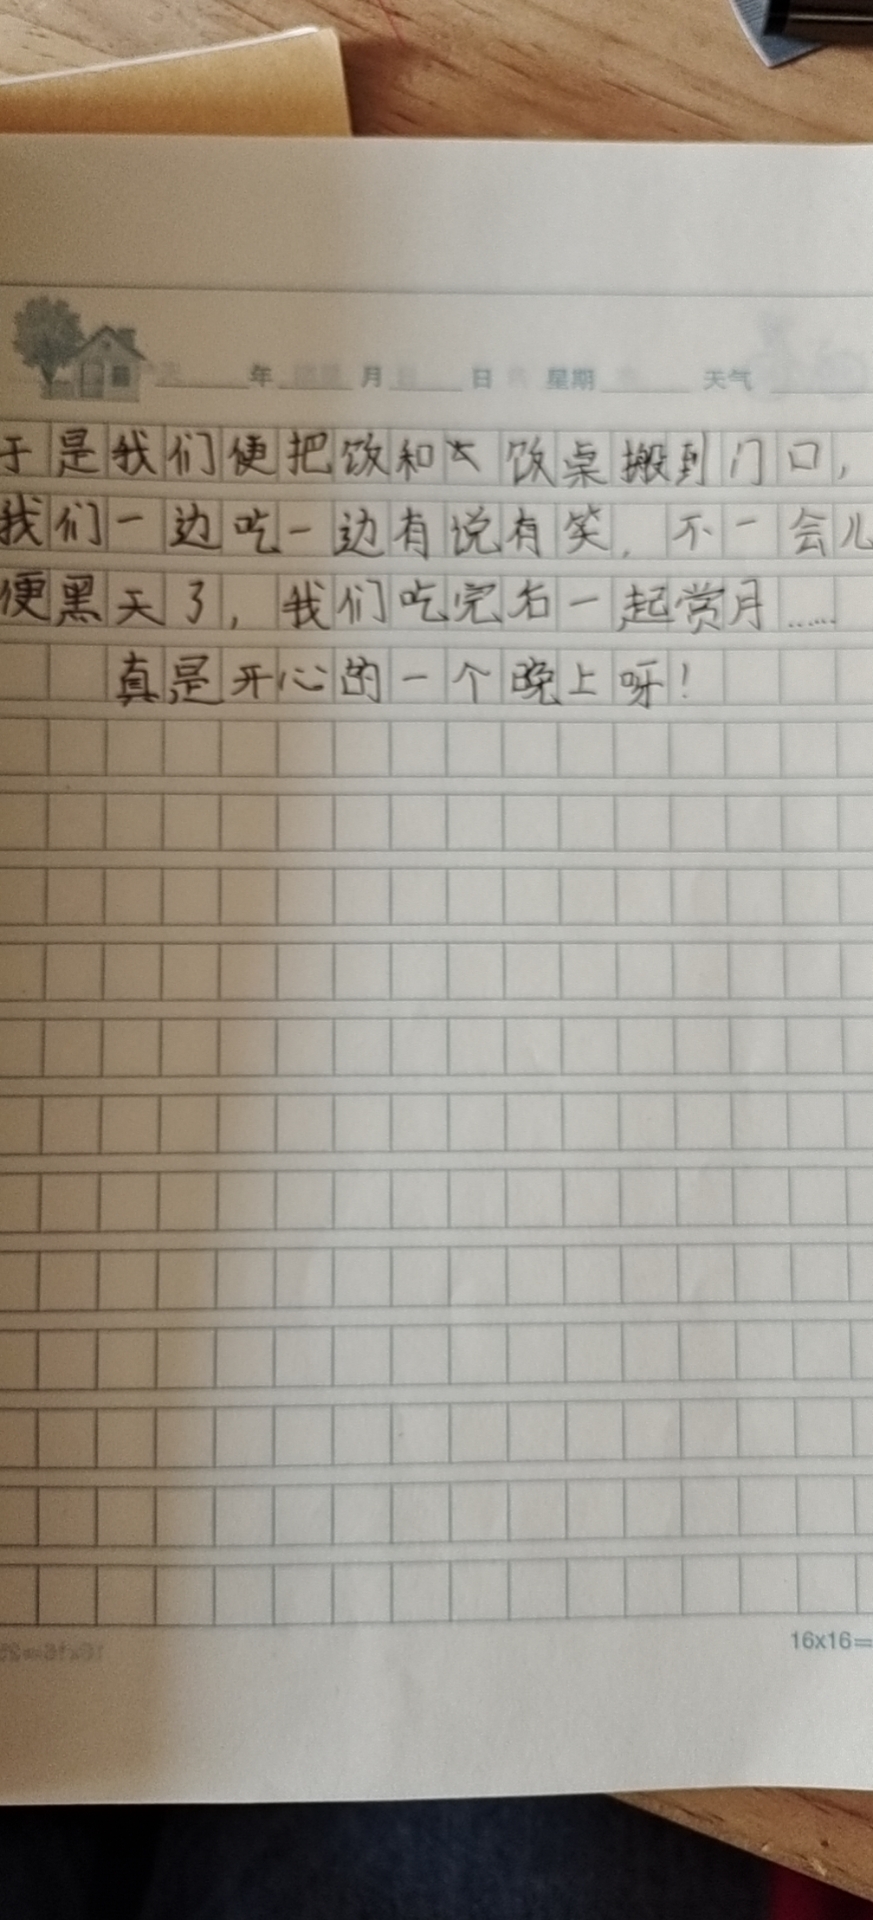 年 月 日 星期 天气
于是我们便把饭和大饭桌搬到门口，
我们一边吃一边有说有笑，不一会儿
便黑天了，我们吃完后一起赏月……
真是开心的一个晚上呀！
16x16=